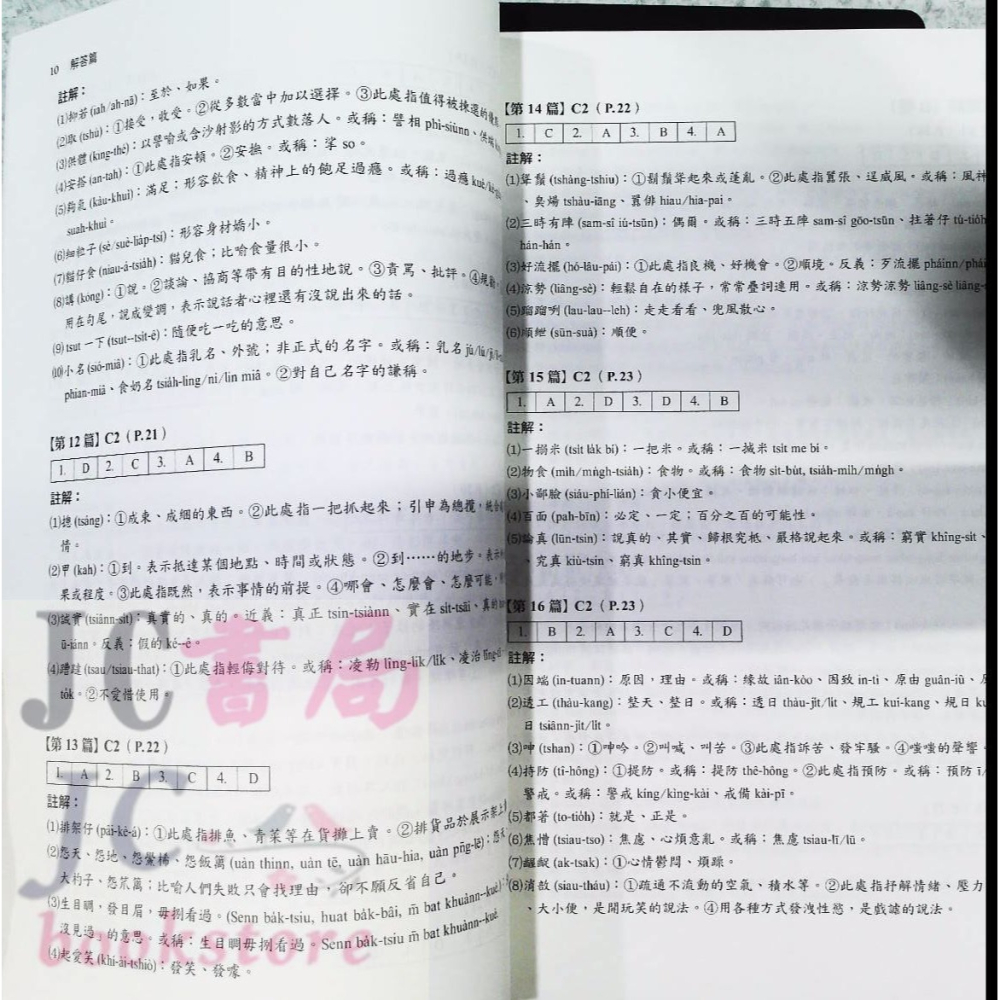 10 解答篇
註解：
(1)抑若 (iah/ah-nā)：至於、如果。
(2)取 (tshú)：①接受，收受。②從多數當中加以選擇。③此處指值得被揀選的
(3)供體 (king-thé)：以譬喻或含沙射影的方式數落人。或稱：譬相 phì-siùnn、供
(4)安搭 (an-tah)：①此處指安頓。②安撫。或稱：挲 so。
(5)夠氣 (kàu-khuì)：滿足；形容飲食、精神上的飽足過癮。或稱：過癮
suah-khuì。
(6)細粒子 (sè/suè-lia̍p-tsí)：形容身材嬌小。
(7)貓仔食 (niau-á-tsia̍h)：貓兒食；比喻食量很小。
(8)講 (kóng)：①說。②談論、協商等帶有目的性地說。③責罵、批評。④規勸，
用在句尾，說成變調，表示說話者心裡還有沒說出來的話。
(9) tsut 一下 (tsut--tsi̍t-ē)：隨便吃一吃的意思。
(10)小名 (sió-miâ)：①此處指乳名、外號；非正式的名字。或稱：乳名
phian-miâ、食奶名 tsia̍h-ling/ni/lin miâ。②對自己名字的謙稱。
【第 12 篇】C2（P.21）
1. D 2. C 3. A 4. B
註解：
(1)摠 (tsáng)：①成束、成綑的東西。②此處指一把抓起來；引申為總攬，
情。
(2)甲 (kah)：①到。表示抵達某個地點、時間或狀態。②到……的地步。表示
果或程度。③此處指既然，表示事情的前提。④哪會、怎麼會、怎麼可能，
(3)誠實 (tsiânn-si̍t)：真實的、真的。近義：真正 tsin-tsiànn、實在 si̍t-tsāi、真的
ū-iánn。反義：假的 ké--ê。
(4)蹧躂 (tsau/tsiau-that)：①此處指輕侮對待。或稱：凌勒 lîng-li̍k/li̍k、凌治
to̍k。②不愛惜使用。
【第 13 篇】C2（P.22）
1. A 2. B 3. C 4. D
註解：
(1)排架仔 (pâi-kè-á)：①此處指排魚、青菜等在貨攤上賣。②排貨品於展示架上
(2)怨天、怨地、怨鱟桸、怨飯篱 (uàn thinn, uàn tē, uàn hāu-hia, uàn pn̄g-lē)：怨天
大杓子、怨笊篱；比喻人們失敗只會找理由，卻不願反省自己。
(3)生目睭，發目眉，毋捌看過。(Senn ba̍k-tsiu, huat ba̍k-bâi, m̄ bat khuànn--kuè.)：
沒見過」的意思。或稱：生目睭毋捌看過。Senn ba̍k-tsiu m̄ bat khuànn--kuè
(4)起愛笑 (khí-ài-tshiò)：發笑、發噱。
【第 14 篇】C2（P.22）
1. C 2. A 3. B 4. A
註解：
(1)聳鬚 (tshàng-tshiu)：①鬍鬚聳起來或蓬亂。②此處指囂張、逞威風。或稱：風神
、臭煬 tshàu-iāng、囂俳 hiau/hia-pai。
(2)三時有陣 (sam-sî iú-tsūn)：偶爾。或稱：三時五陣 sam-sî gōo-tsūn、拄著仔
hán-hán。
(3)好流擺 (hó-lâu-pái)：①此處指良機、好機會。②順境。反義：歹流擺 pháinn/phái
(4)涼勢 (liâng-sè)：輕鬆自在的樣子，常常疊詞連用。或稱：涼勢涼勢 liâng-sè liâng-
(5)蹓蹓咧 (lau-lau--leh)：走走看看、兜風散心。
(6)順紲 (sūn-suà)：順便。
【第 15 篇】C2（P.23）
1. A 2. D 3. D 4. B
註解：
(1)一搦米 (tsi̍t la̍k bí)：一把米。或稱：一搣米 tsi̍t me bí。
(2)物食 (mi̍h/mn̍gh-tsia̍h)：食物。或稱：食物 si̍t-bu̍t, tsia̍h-mi̍h/mn̍gh。
(3)小鄙臉 (siáu-phí-lián)：貪小便宜。
(4)百面 (pah-bīn)：必定、一定；百分之百的可能性。
(5)論真 (lūn-tsin)：說真的、其實、歸根究柢、嚴格說起來。或稱：窮實 khîng-si̍t、
、究真 kiù-tsin、窮真 khîng-tsin。
【第 16 篇】C2（P.23）
1. B 2. A 3. C 4. D
註解：
(1)因端 (in-tuann)：原因，理由。或稱：緣故 iân-kòo、因致 in-tì、原由 guân-iû、
(2)透工 (thàu-kang)：整天、整日。或稱：透日 thàu-ji̍t/li̍t、規工 kui-kang、規日
日 tsiânn-ji̍t/li̍t。
(3)呻 (tshan)：①呻吟。②叫喊、叫苦。③此處指訴苦、發牢騷。④嗤嗤的聲響。
(4)持防 (tî-hông)：①提防。或稱：提防 thê-hông。②此處指預防。或稱：預防
警戒。或稱：警戒 kíng/kìng-kài、戒備 kài-pī。
(5)都著 (to-tio̍h)：就是、正是。
(6)焦憎 (tsiau-tso)：焦慮、心煩意亂。或稱：焦慮 tsiau-lī/lū。
(7)齷齪 (ak-tsak)：①心情鬱悶、煩躁。
(8)消敨 (siau-tháu)：①疏通不流動的空氣、積水等。②此處指抒解情緒、壓力
、大小便，是開玩笑的說法。④用各種方式發洩性慾，是戲謔的說法。
JC書局
JC
bookstore